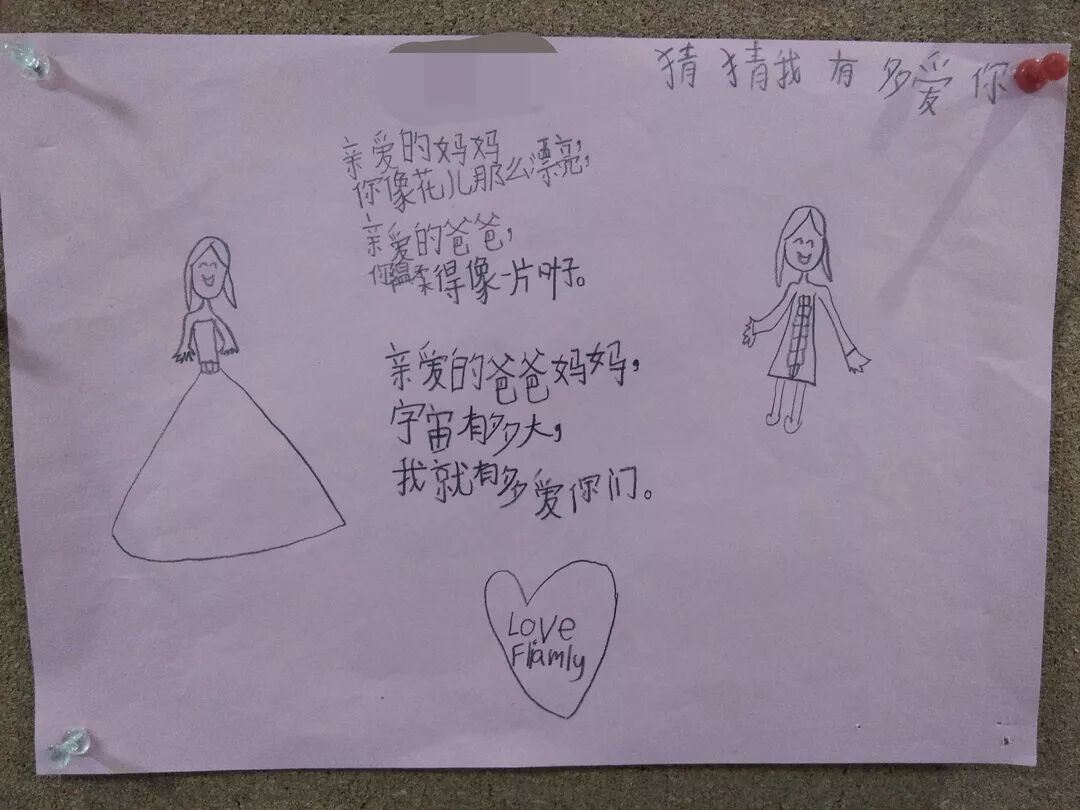 猜猜我有多爱你
亲爱的妈妈
你像花儿那么漂亮，
亲爱的爸爸，
你温柔得像一片叶子。
亲爱的爸爸妈妈，
宇宙有多大，
我就有多爱你们。
Love
Fliamly